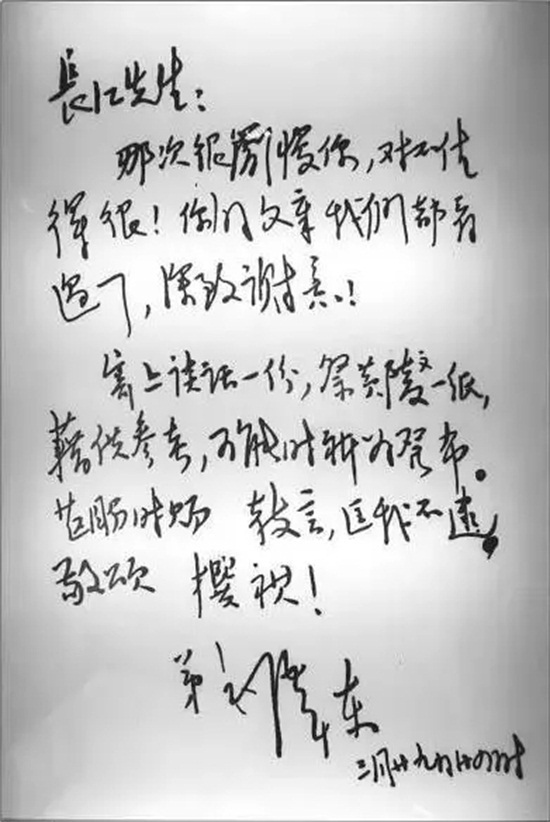 長江先生：
那次很簡慢你，对不住
得很！你的文章我们都看
过了，深致谢意！
寄上谈话一份，祭黄陵文一纸，
藉供参考，可能时祈为发布。
甚盼时赐 教言，匡我不逮。
敬颂 撰祺！
弟毛泽东
三月廿九日廿四时